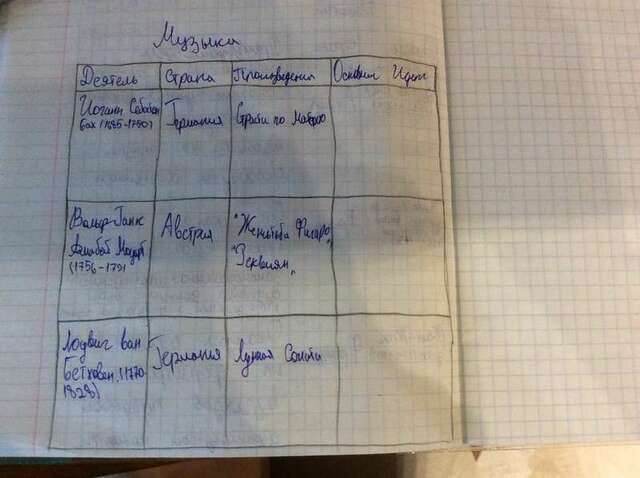 Музыка
Деятель Страна Произведения Основн Идеи
Иоганн Себастьян
Бах (1685-1750)
Германия
Страсти по Матфею
Вольфганк
Амадей Моцарт
(1756-1791
Австрия
"Женитьба Фигаро"
"Реквием"
Людвиг ван
Бетховен (1770
1828)
Германия
Лунная Соната